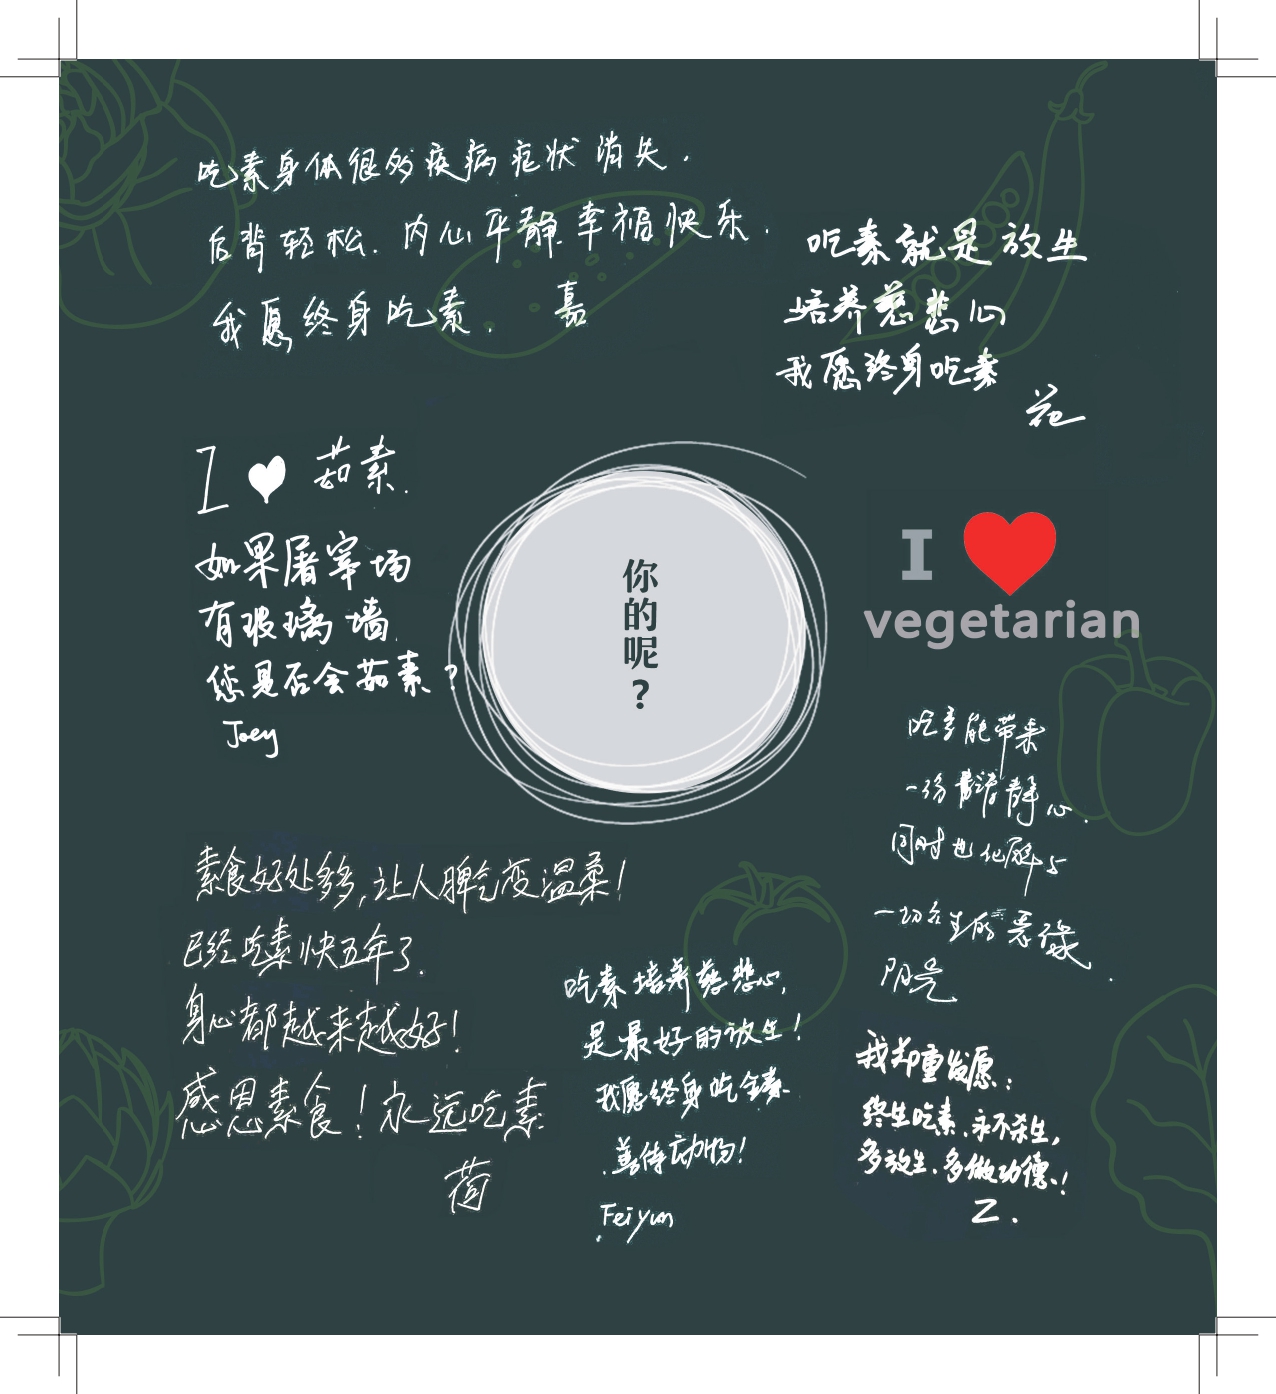 吃素身体很多疾病症状消失.
后背轻松.内心平静.幸福快乐.
我愿终身吃素.
嘉
吃素就是放生
培养慈悲心
我愿终身吃素
I ♥ 茹素.
如果屠宰场
有玻璃墙.
您是否会茹素?
Joey
你的呢?
I ♥
vegetarian
吃素能带来
一份 静心.
同时也化解与
一切众生的恶缘.
素食好处多多,让人脾气变温柔!
已经吃素快五年了.
身心都越来越好!
感恩素食!永远吃素
荷
吃素培养慈悲心,
是最好的放生!
我愿终身吃全素.
善待动物!
Feiyun
我郑重发愿:
终生吃素.永不杀生,
多放生.多做功德.!
Z.